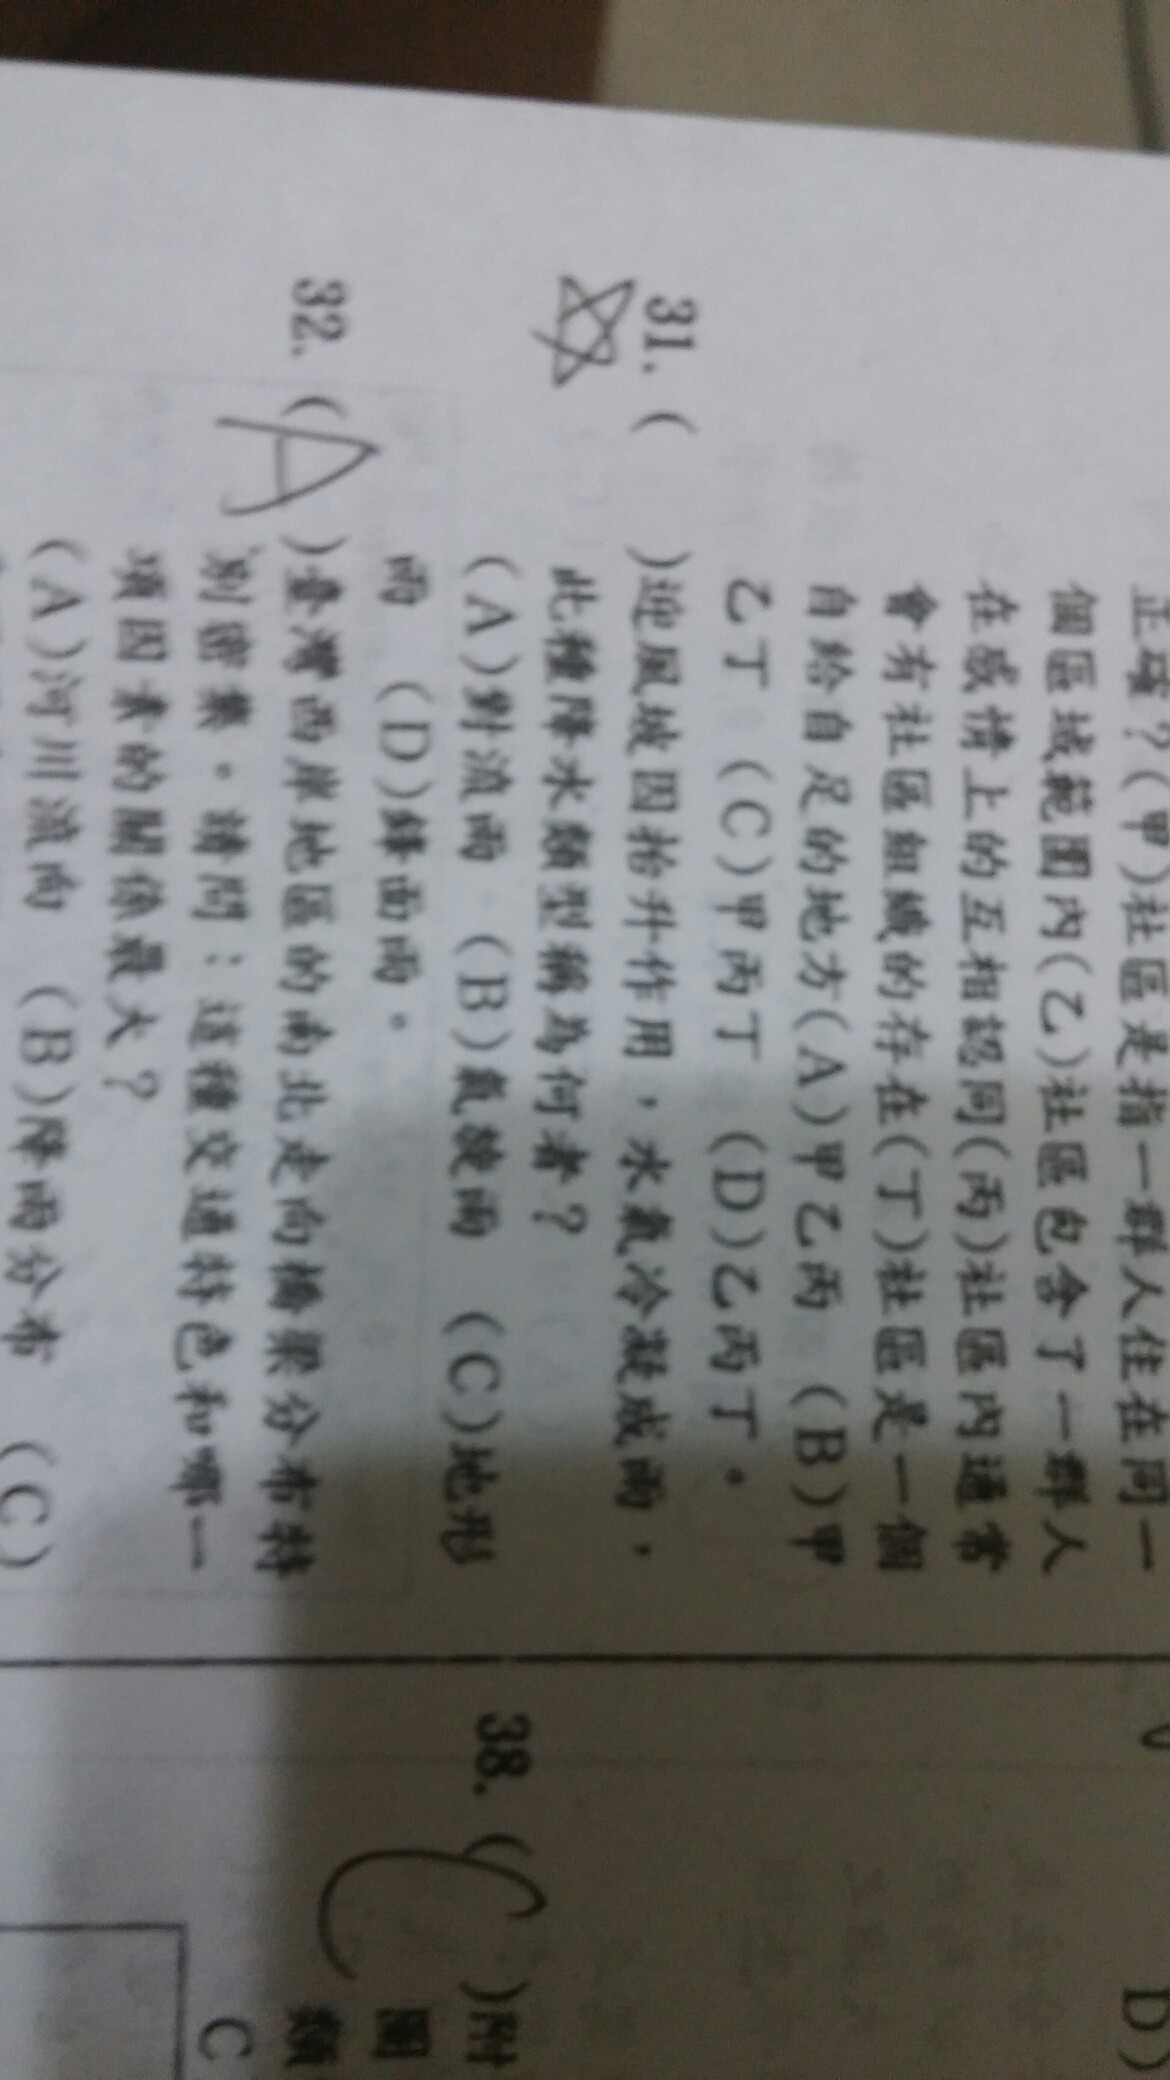 正確？(甲)社區是指一群人住在同一
個區域範圍內(乙)社區包含了一群人
在感情上的互相認同(丙)社區內通常
會有社區組織的存在(丁)社區是一個
自給自足的地方(A)甲乙丙 (B)甲
乙丁 (C)甲丙丁 (D)乙丙丁。
31. ( )迎風坡因抬升作用，水氣冷凝成雨，
此種降水類型稱為何者？
(A)對流雨 (B)氣旋雨 (C)地形
雨 (D)鋒面雨。
32. (A)臺灣西岸地區的南北走向橋梁分布特
別密集。請問：這種交通特色和哪一
項因素的關係最大？
(A)河川流向 (B)降雨分布 (C)
D)
38. (C)附
圖
類
C